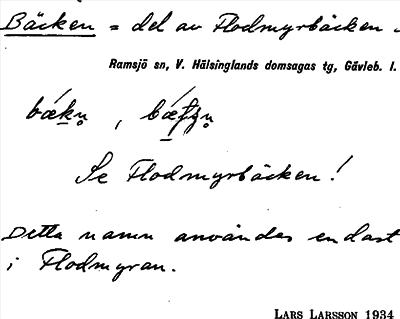 Bäcken = del av Flodmyrbäcken.
Ramsjö sn, V. Hälsinglands domsagas tg, Gävleb. l.
bækn̥ ,
Se Flodmyrbäcken!
Detta namn användes endast
i Flodmyran.
LARS LARSSON 1934